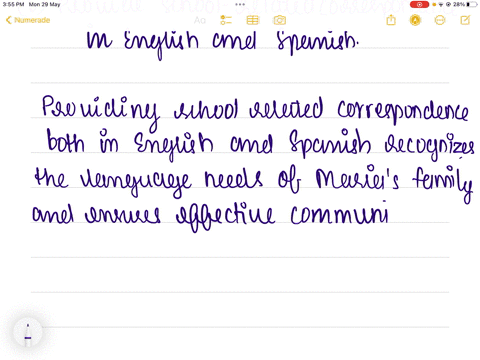 3:55 PM Mon 29 May
28%
Numerade
Aa
in English and Spanish.
Providing school related correspondence
both in English and Spanish recognizes
the language needs of Maria's family
and ensures effective communi